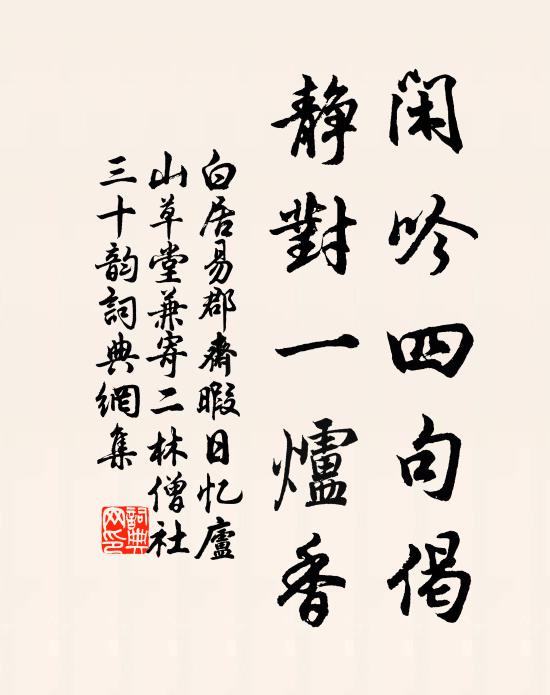 闲吟四句偈
靜對一爐香
白居易郡斎暇日忆廬
山草堂兼寄二林僧社
三十韵詞典網集
詞典
网印